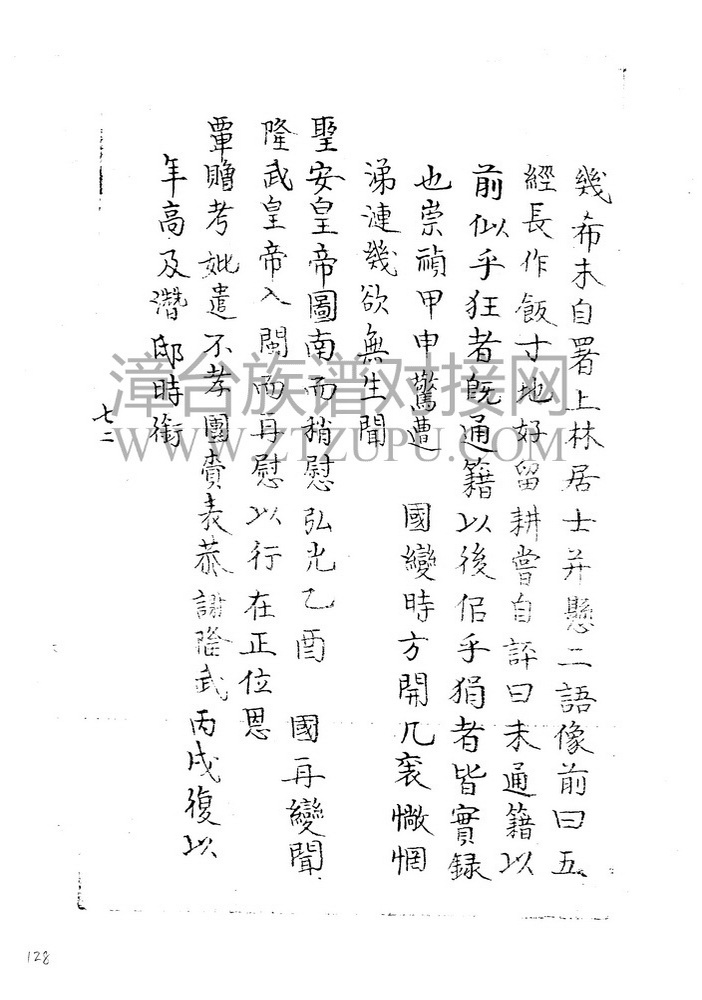 幾希未自署上林居士并懸二語像前曰五
經長作飯寸地好留耕嘗自評曰未通籍以
前似乎狂者既通籍以後佀乎狷者皆實録
也崇禎甲申驚遭 國變時方開九袠惝惘
涕漣幾欲無生聞
聖安皇帝圖南而稍慰弘光乙酉 國再變聞
隆武皇帝入閩而再慰以行在正位恩
覃贈考妣遣不孝團賫表恭謝隆武丙戌復以
年高及潛邸時銜
七二
漳台族谱对接网
WWW.ZTZUPU.COM
128